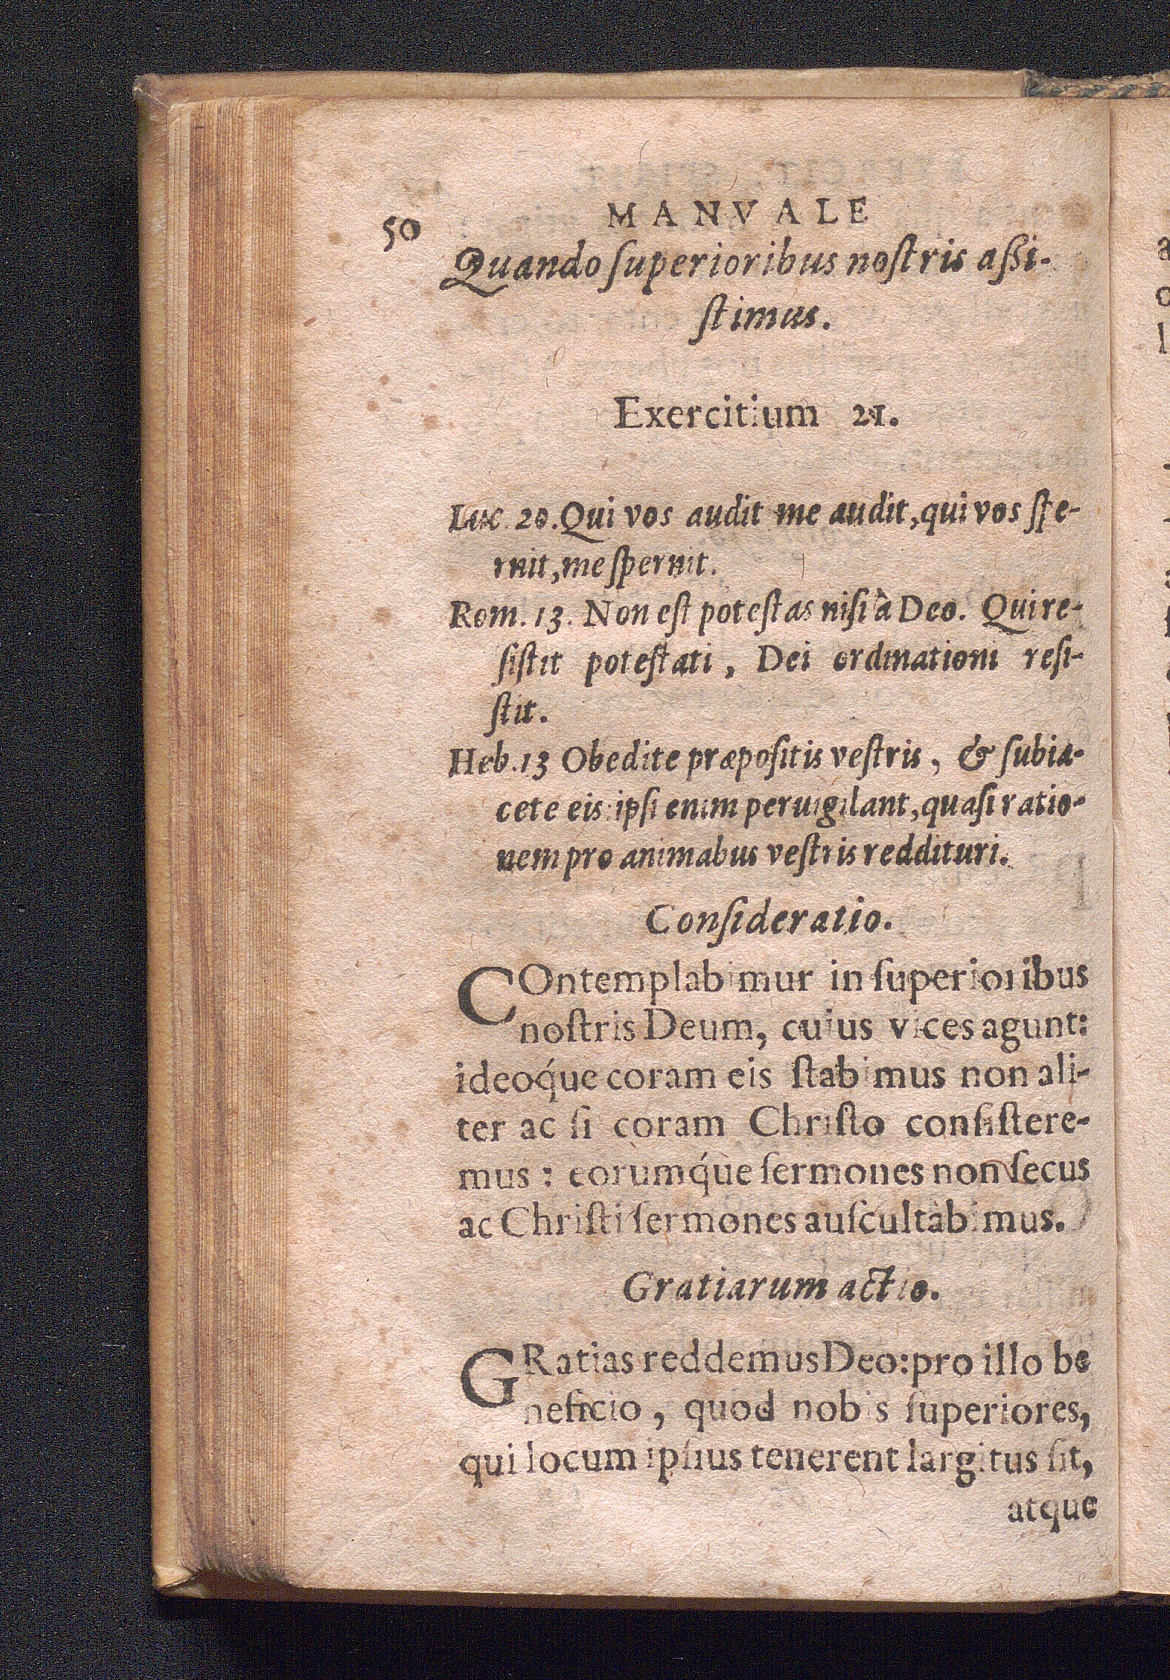 50 MANVALE
Quando ſuperioribus noſtris aßi-
ſtimus.
Exercitium 21.
Luc. 20. Qui vos audit me audit, qui vos ſpe-
rnit, me ſpernit.
Rom. 13. Non eſt poteſtas niſi à Deo. Qui re-
ſiſtit poteſtati, Dei ordinationi reſi-
ſtit.
Heb. 13 Obedite præpoſitis veſtris, & ſubia-
cete eis: ipſi enim peruigilant, quaſi ratio-
nem pro animabus veſtris reddituri.
Conſideratio.
COntemplabimur in ſuperioribus
noſtris Deum, cuius vices agunt:
ideoq́ue coram eis ſtabimus non ali-
ter ac ſi coram Chriſto conſiſtere-
mus: eorumq́ue ſermones non ſecus
ac Chriſti ſermones auſcultabimus.
Gratiarum actio.
GRatias reddemus Deo: pro illo be
neficio, quod nobis ſuperiores,
qui locum ipſius tenerent largitus ſit,
atque